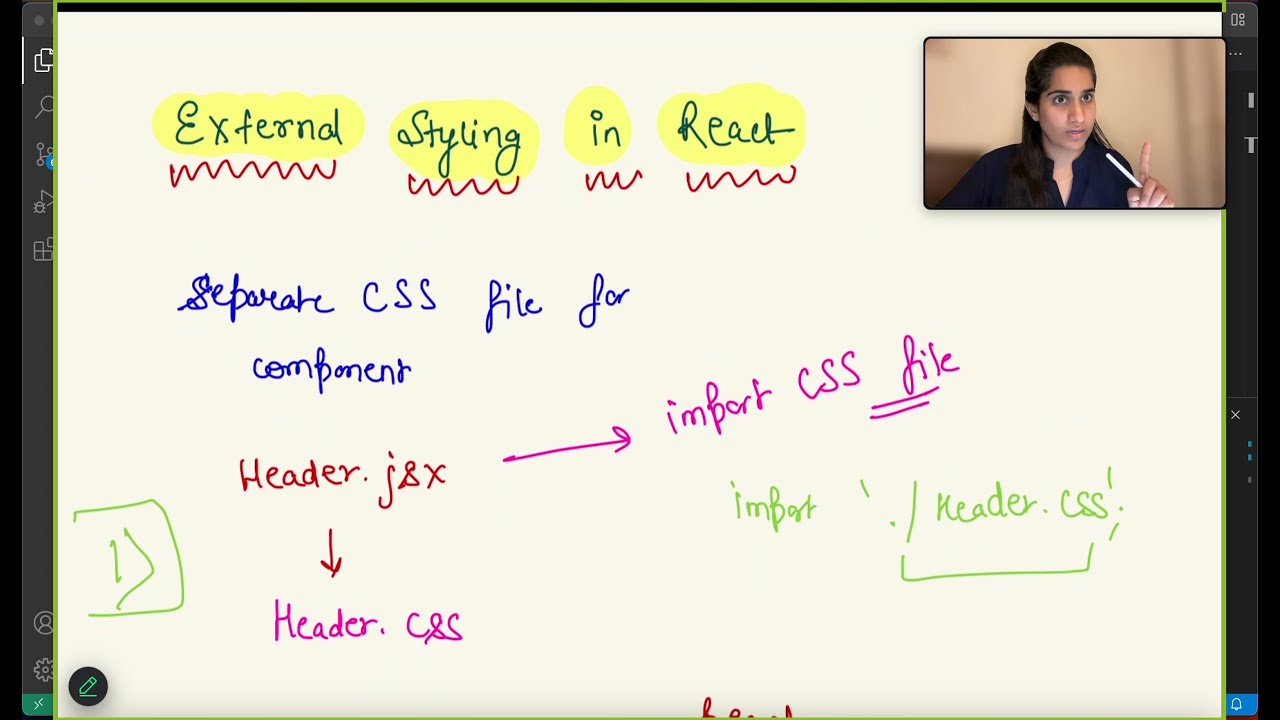 External Styling in React
Separate CSS file for
component
import CSS file
Header.jsx
import './Header.css';
1)
Header.css